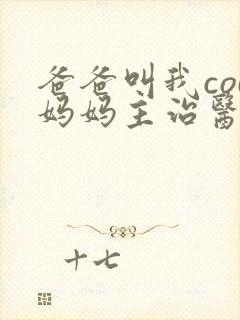 爸爸叫我co
妈妈主治醫
十七